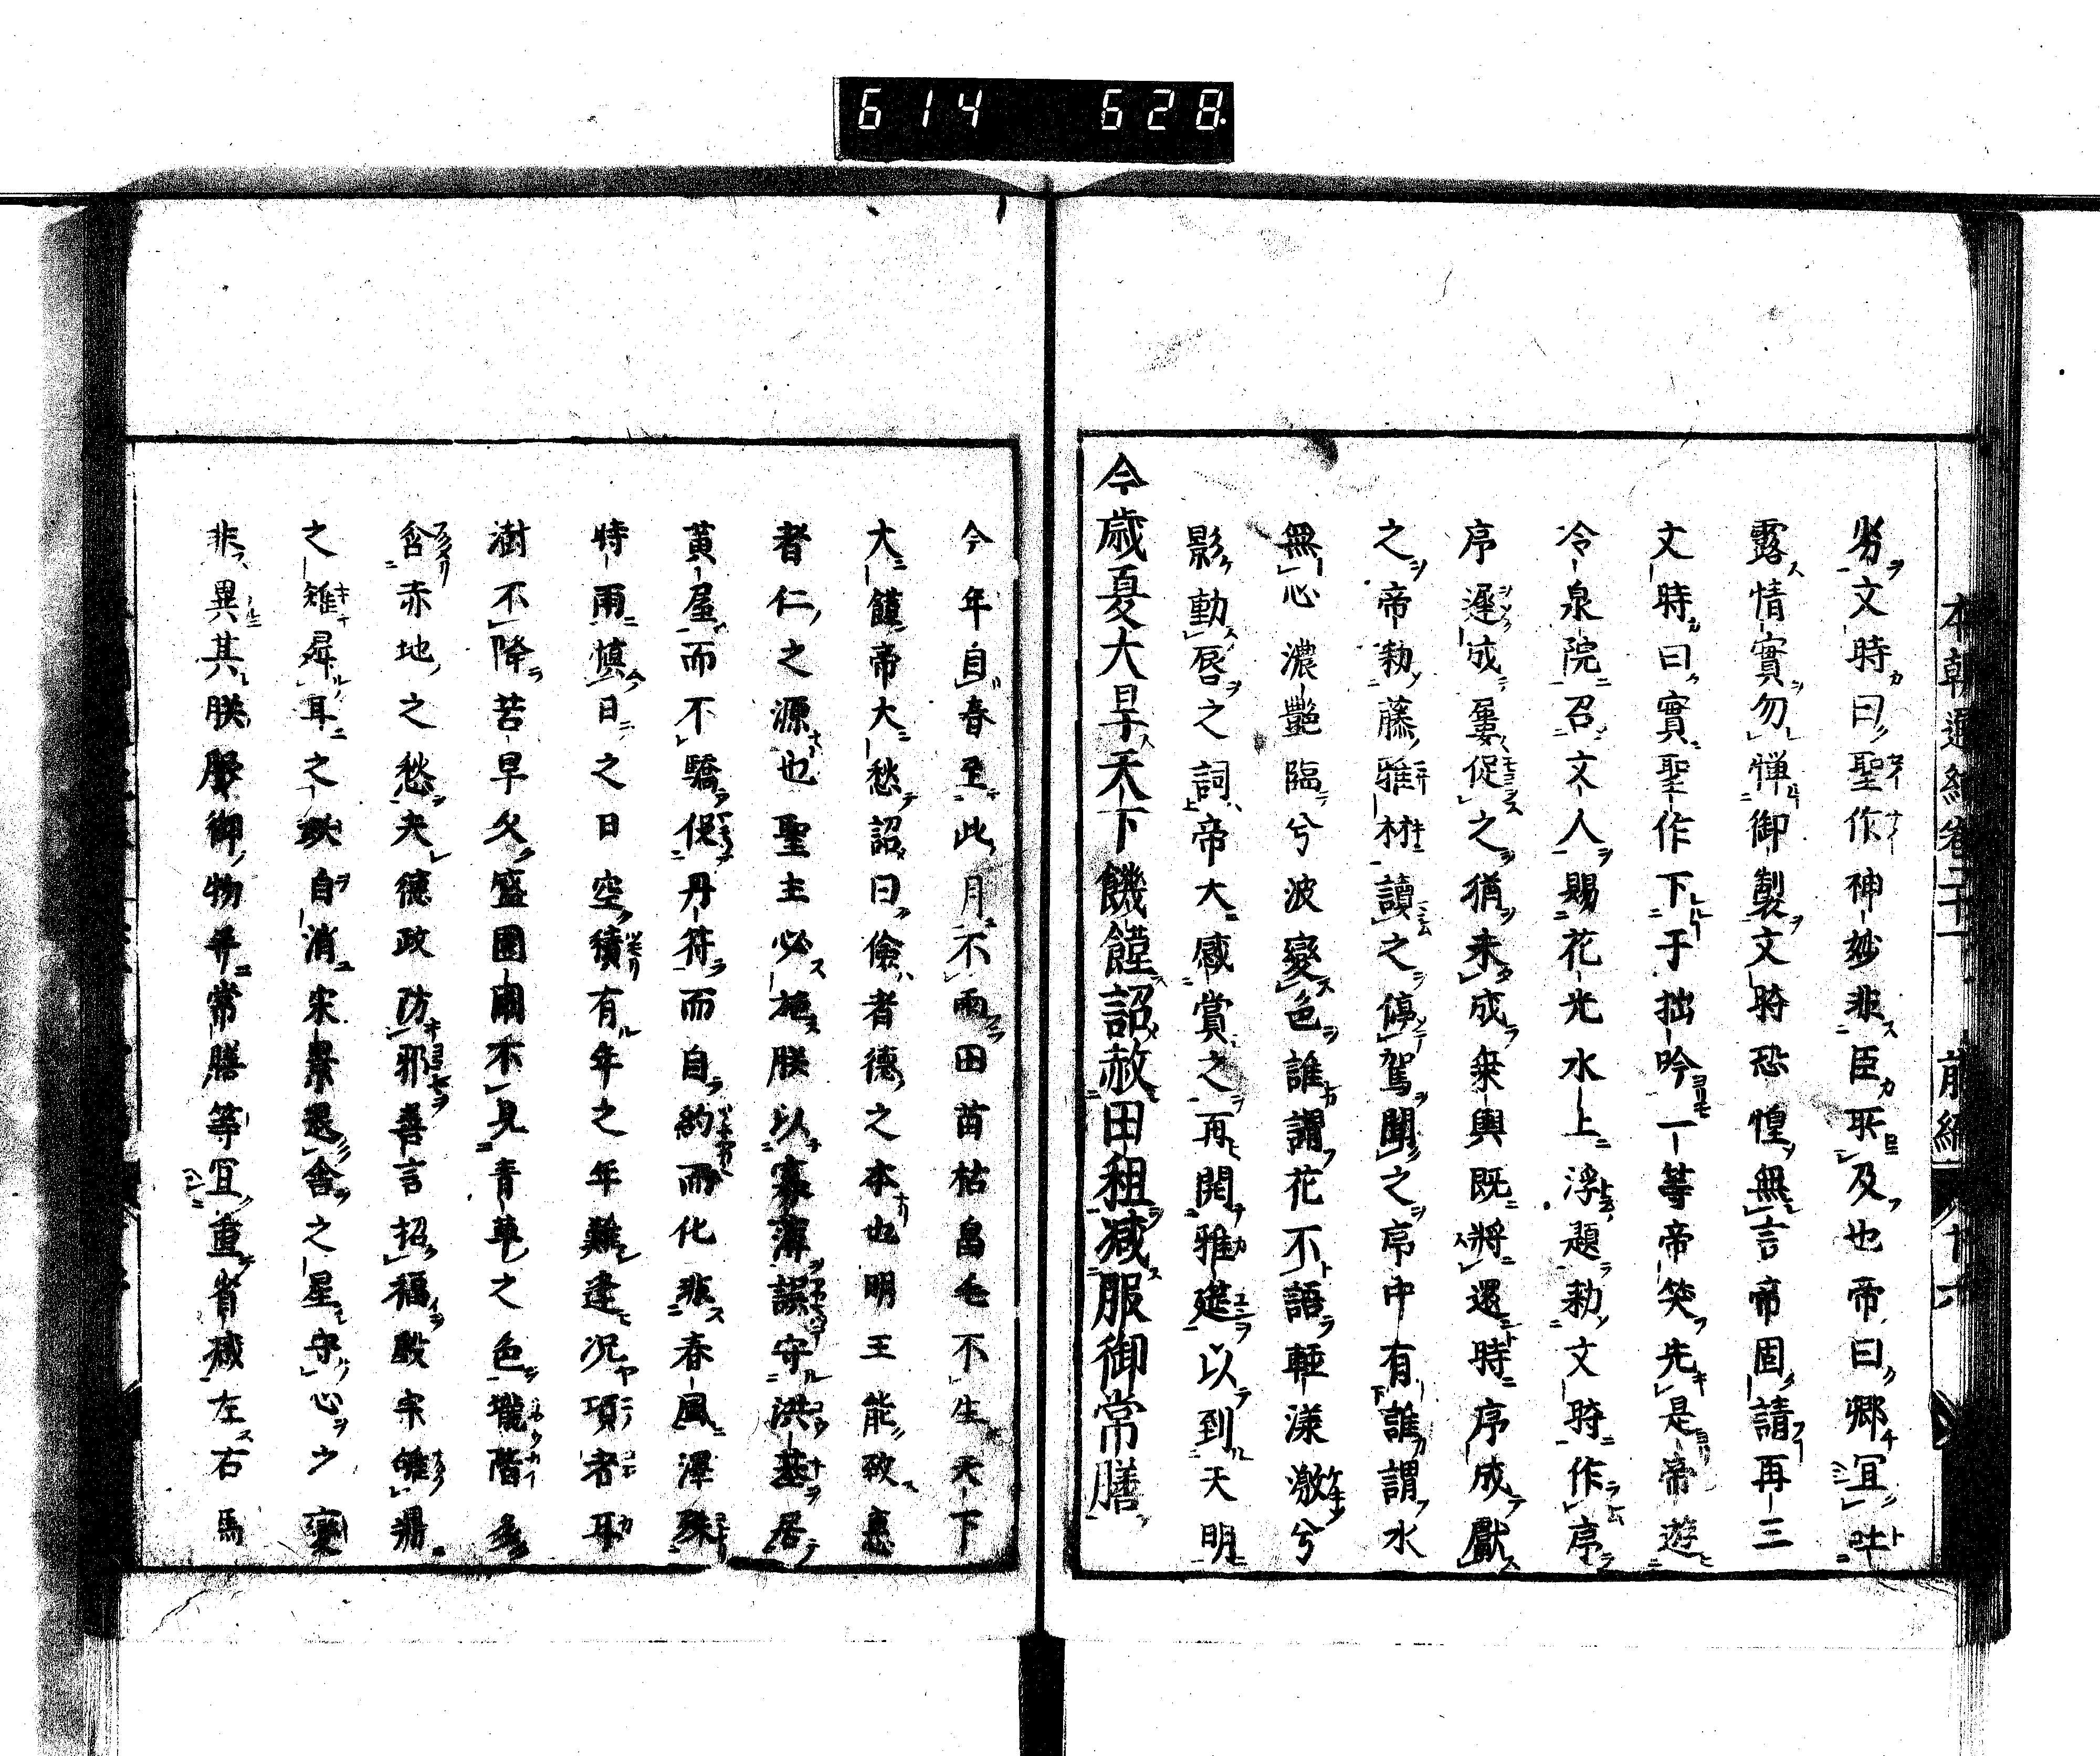 614 628
本朝通紀卷二十一 前編 八 十六
劣文時曰聖作神妙非臣所及也帝曰鄉宜吐
露情實勿憚御製文時恐惶無言帝固請再三
文時曰實聖作下于拙吟一等帝笑先是帝遊
冷泉院召文人賜花光水上浮題勅文時作序
序遲成屢促之猶未成乗輿既將還時序成獻
之帝勅藤雅材讀之停駕聞之序中有誰謂水
無心濃艷臨兮波變色誰謂花不語輕漾激兮
影動唇之詞帝大感賞之再開雅莚以到天明
今歲夏大旱天下饑饉詔赦田租减服御常膳
今年自春至此月不雨田苗枯畠毛不生天下
大饉帝大愁詔曰儉者德之本也明王能致惠
者仁之源也聖主必施朕以寡薄誤守洪基居
黃屋而不驕促丹符而自約而化非春風澤殊
時雨慎日之日空積有年之年難逢况項者耳
澍不降苦旱久盛園囿不見青草之色壠階多
含赤地之愁夫德政防邪善言招福殷宗雊鼎
之雉昇耳之妖自消宋景退舍之星守心之變
非異其朕服御物并常膳等宜重省减左右馬